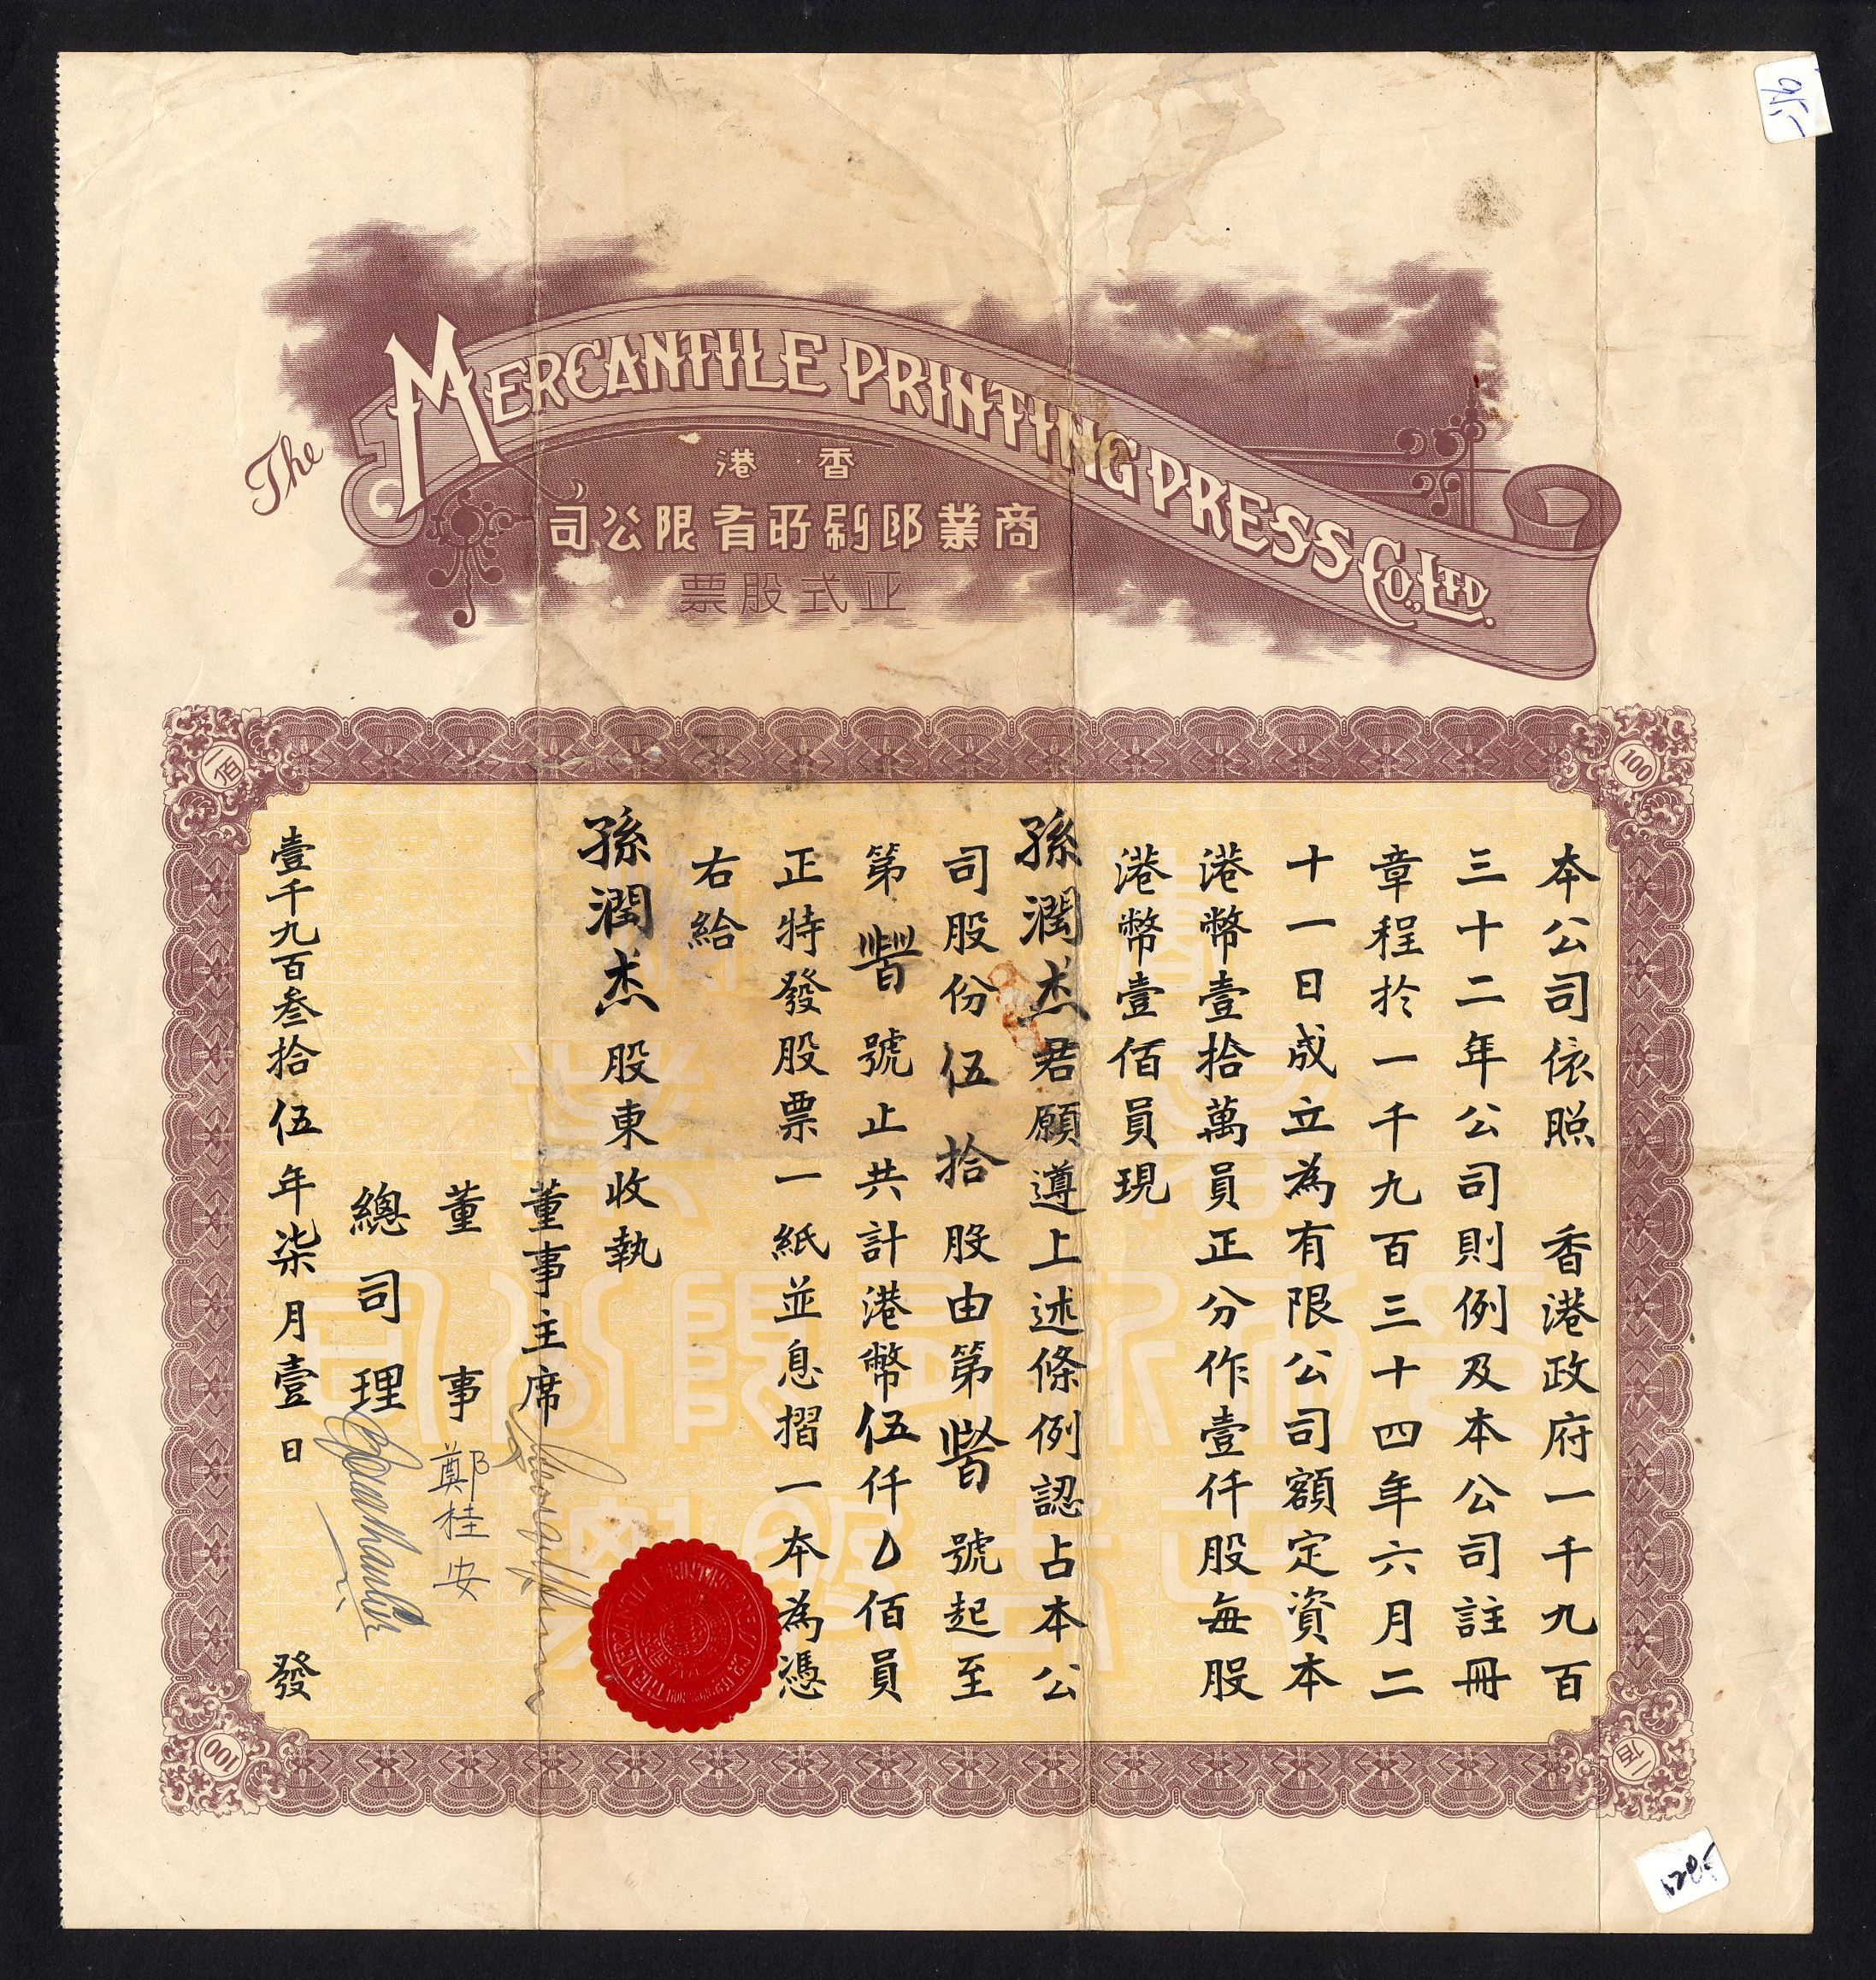 The MERCANTILE PRINTING PRESS CO., LTD.
香港
商業印刷所有限公司
正式股票
一佰
100
本公司依照 香港政府一千九百
三十二年公司則例及本公司註冊
章程於一千九百三十四年六月二
十一日成立為有限公司額定資本
港幣壹拾萬員正分作壹仟股每股
港幣壹佰員現
孫潤杰君願遵上述條例認占本公
司股份伍拾股由第 號起至
第 號止共計港幣伍仟 佰員
正特發股票一紙並息摺一本為憑
右給
孫潤杰股東收執
董事主席
董事 鄭桂安
總司理
壹千九百叁拾伍年柒月壹日 發
100
一佰
95.-